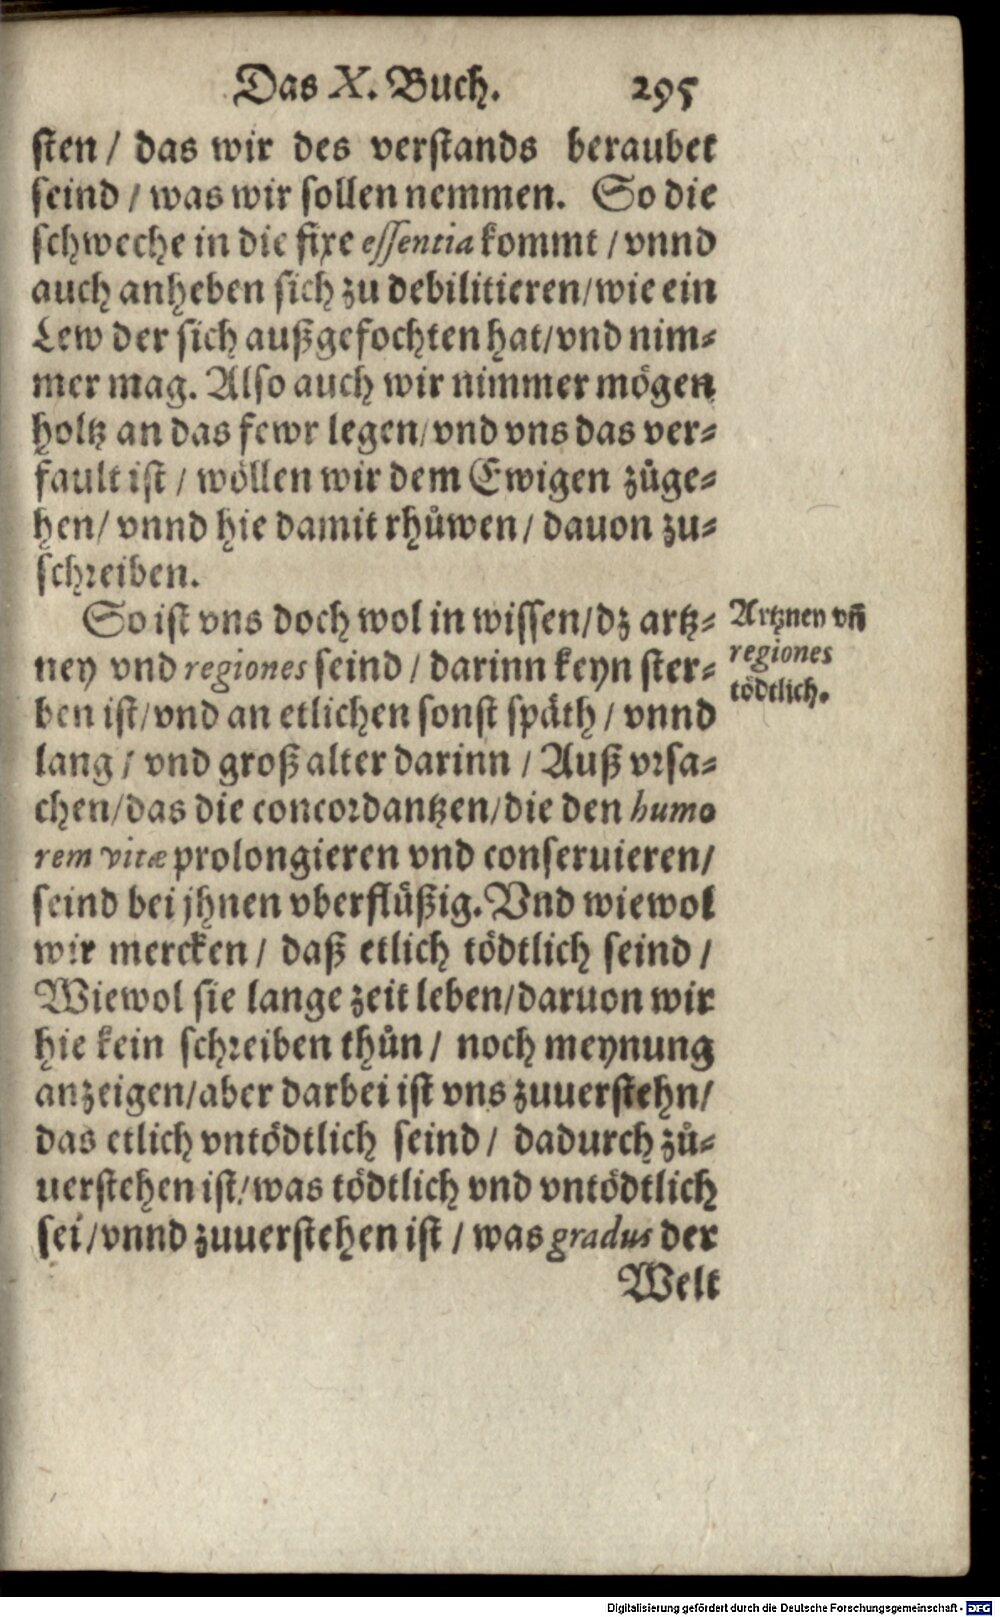 Das X. Buch. 295
sten / das wir des verstands beraubet
seind / was wir sollen nemmen. So die
schweche in die fixe essentia kommt / vnnd
auch anheben sich zu debilitieren/wie ein
Lew der sich außgefochten hat/vnd nim-
mer mag. Also auch wir nimmer mögen
holtz an das fewr legen/vnd vns das ver-
fault ist / wöllen wir dem Ewigen zůge-
hen/ vnnd hie damit rhůwen / dauon zu-
schreiben.
So ist vns doch wol in wissen/dz artz-
ney vnd regiones seind / darinn keyn ster-
ben ist/vnd an etlichen sonst späth / vnnd
lang / vnd groß alter darinn / Auß vrsa-
chen/das die concordantzen/die den humo
rem vitæ prolongieren vnd conseruieren/
seind bei jhnen vberflüßig. Vnd wiewol
wir mercken / daß etlich tödtlich seind /
Wiewol sie lange zeit leben/daruon wir
hie kein schreiben thůn / noch meynung
anzeigen/aber darbei ist vns zuuerstehn/
das etlich vntödtlich seind / dadurch zů-
uerstehen ist/was tödtlich vnd vntödtlich
sei/vnnd zuuerstehen ist / was gradus der
Welt
Artzney vñ
regiones
tödtlich.
Digitalisierung gefördert durch die Deutsche Forschungsgemeinschaft - DFG